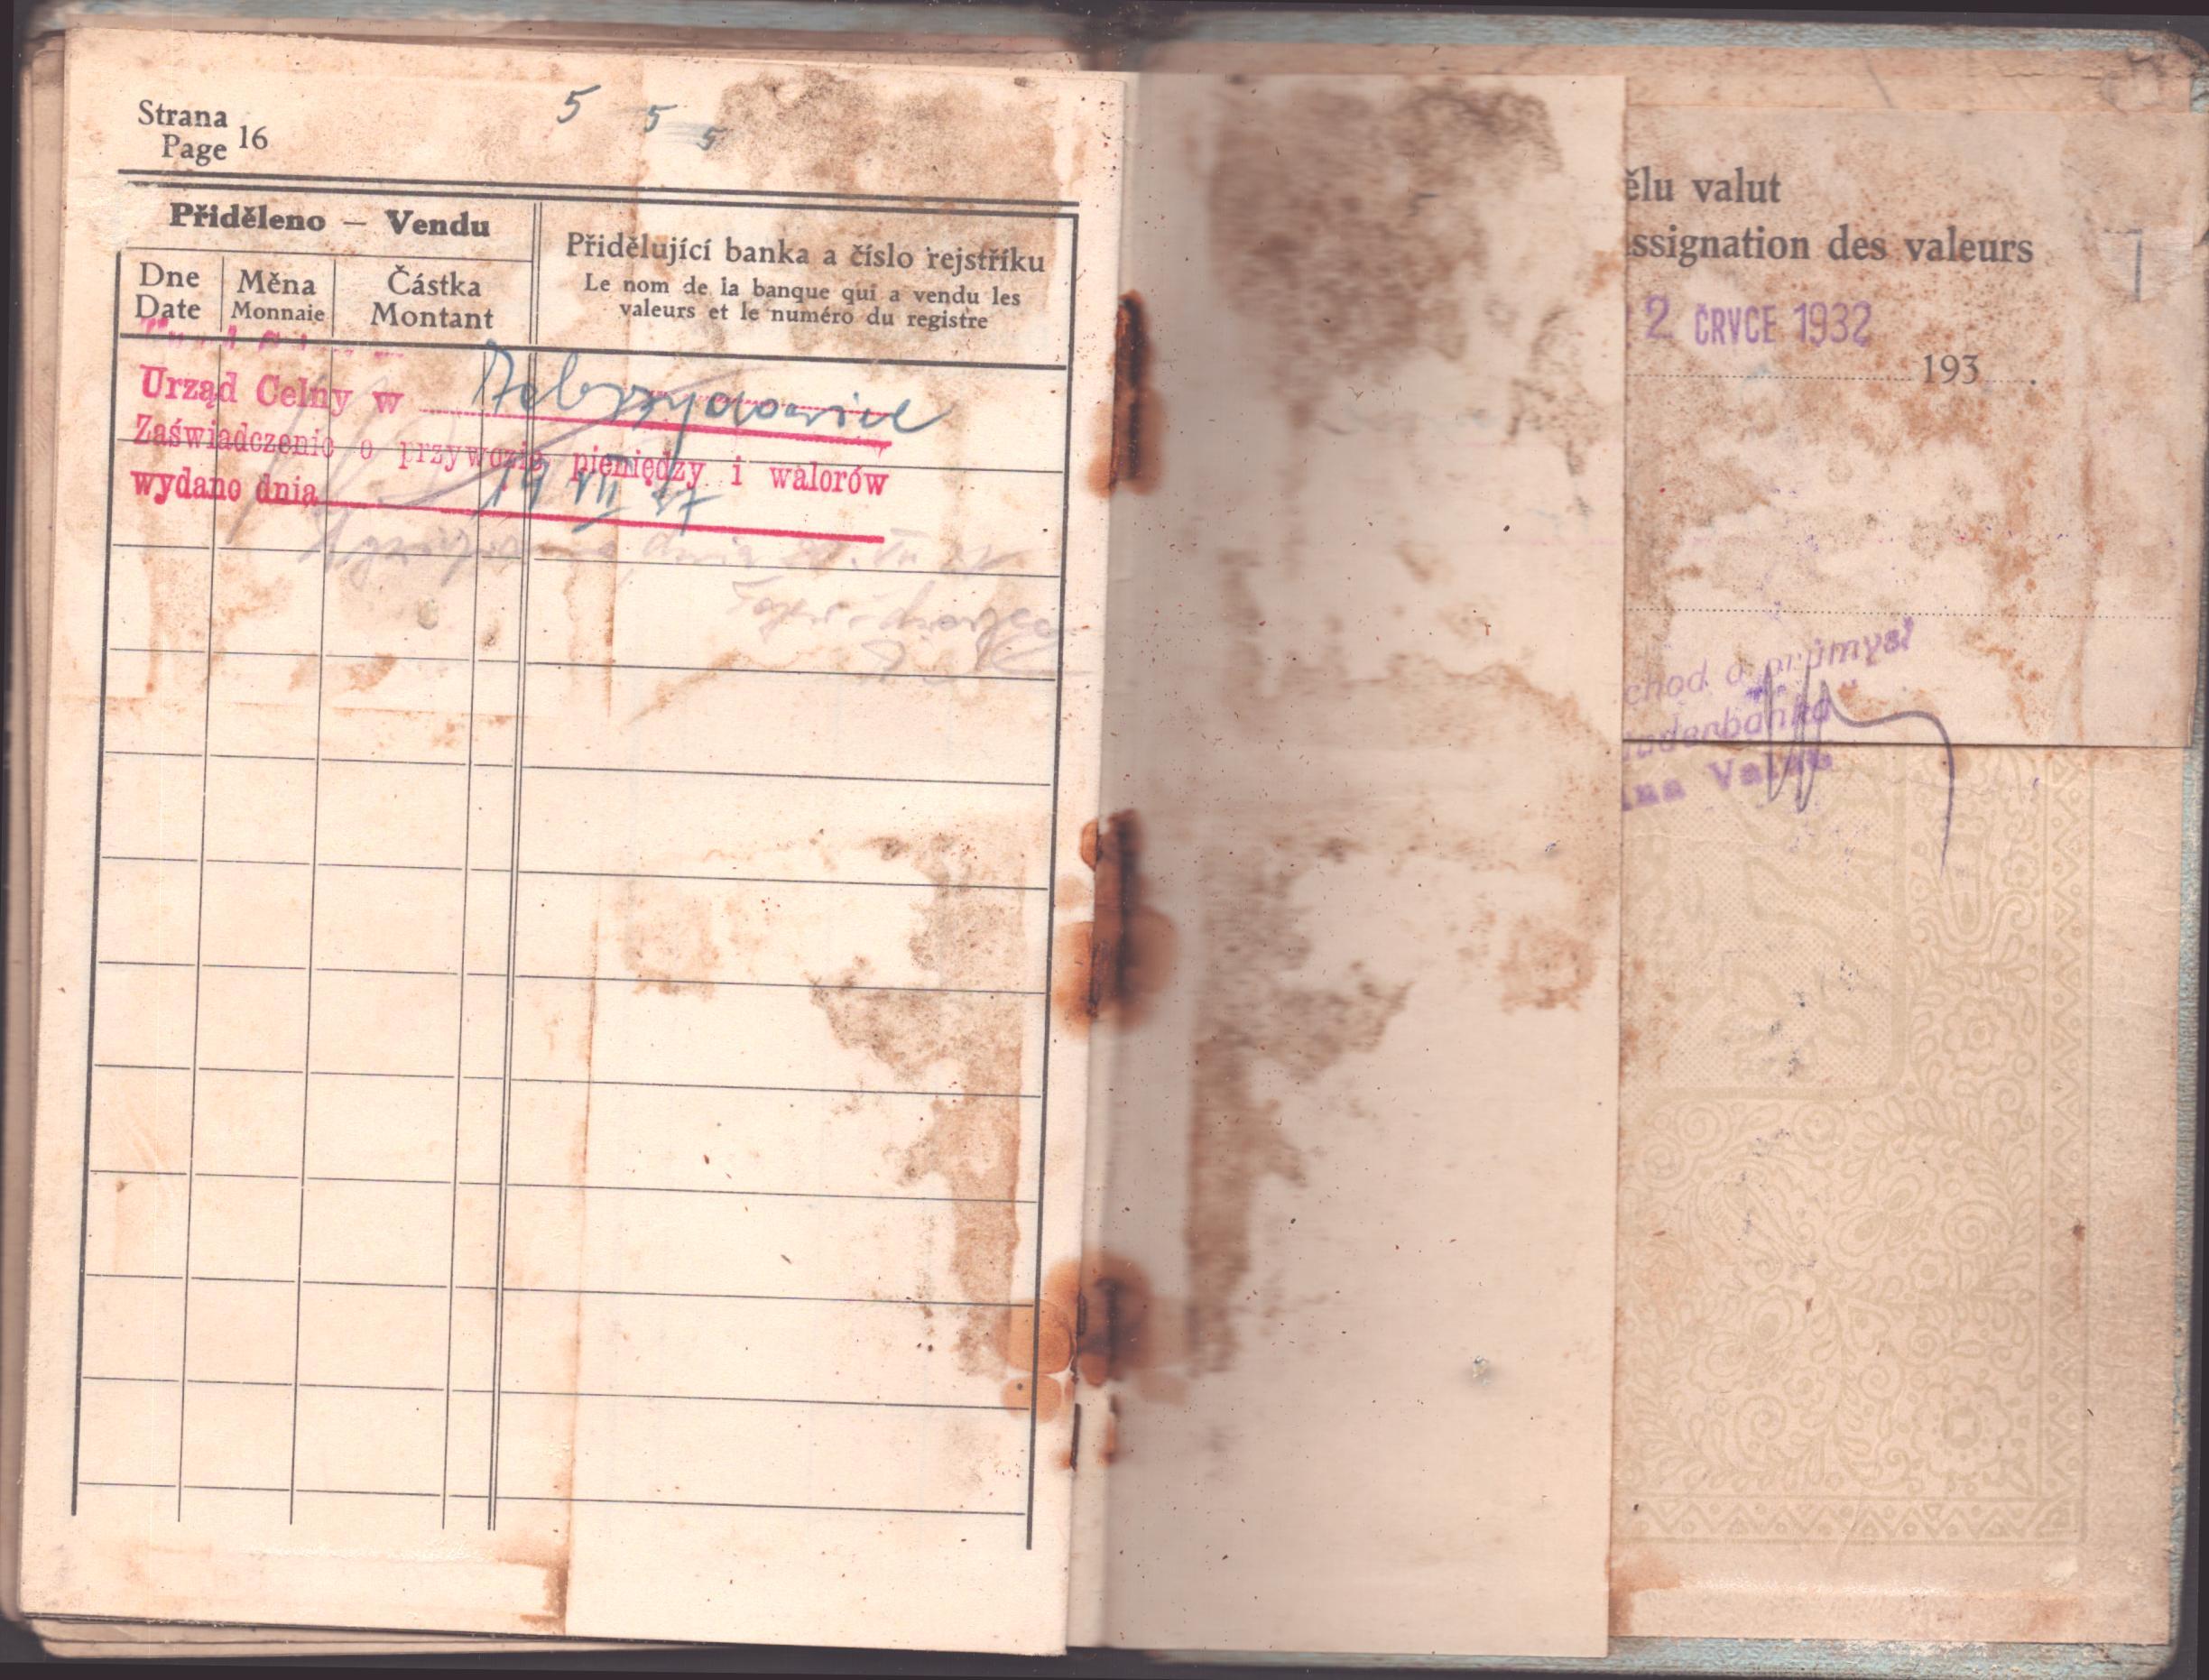 Strana
Page 16
5 5 5
Přiděleno — Vendu
Přidělující banka a číslo rejstříku
Le nom de la banque qui a vendu les
valeurs et le numéro du registre
Dne
Date
Měna
Monnaie
Částka
Montant
Urząd Celny w Zebrzydowice
Zaświadczenie o przywozie pieniędzy i walorów
wydano dnia 19 VII 37
ělu valut
ssignation des valeurs
2 ČRVCE 1932
193 .
chod a průmysl